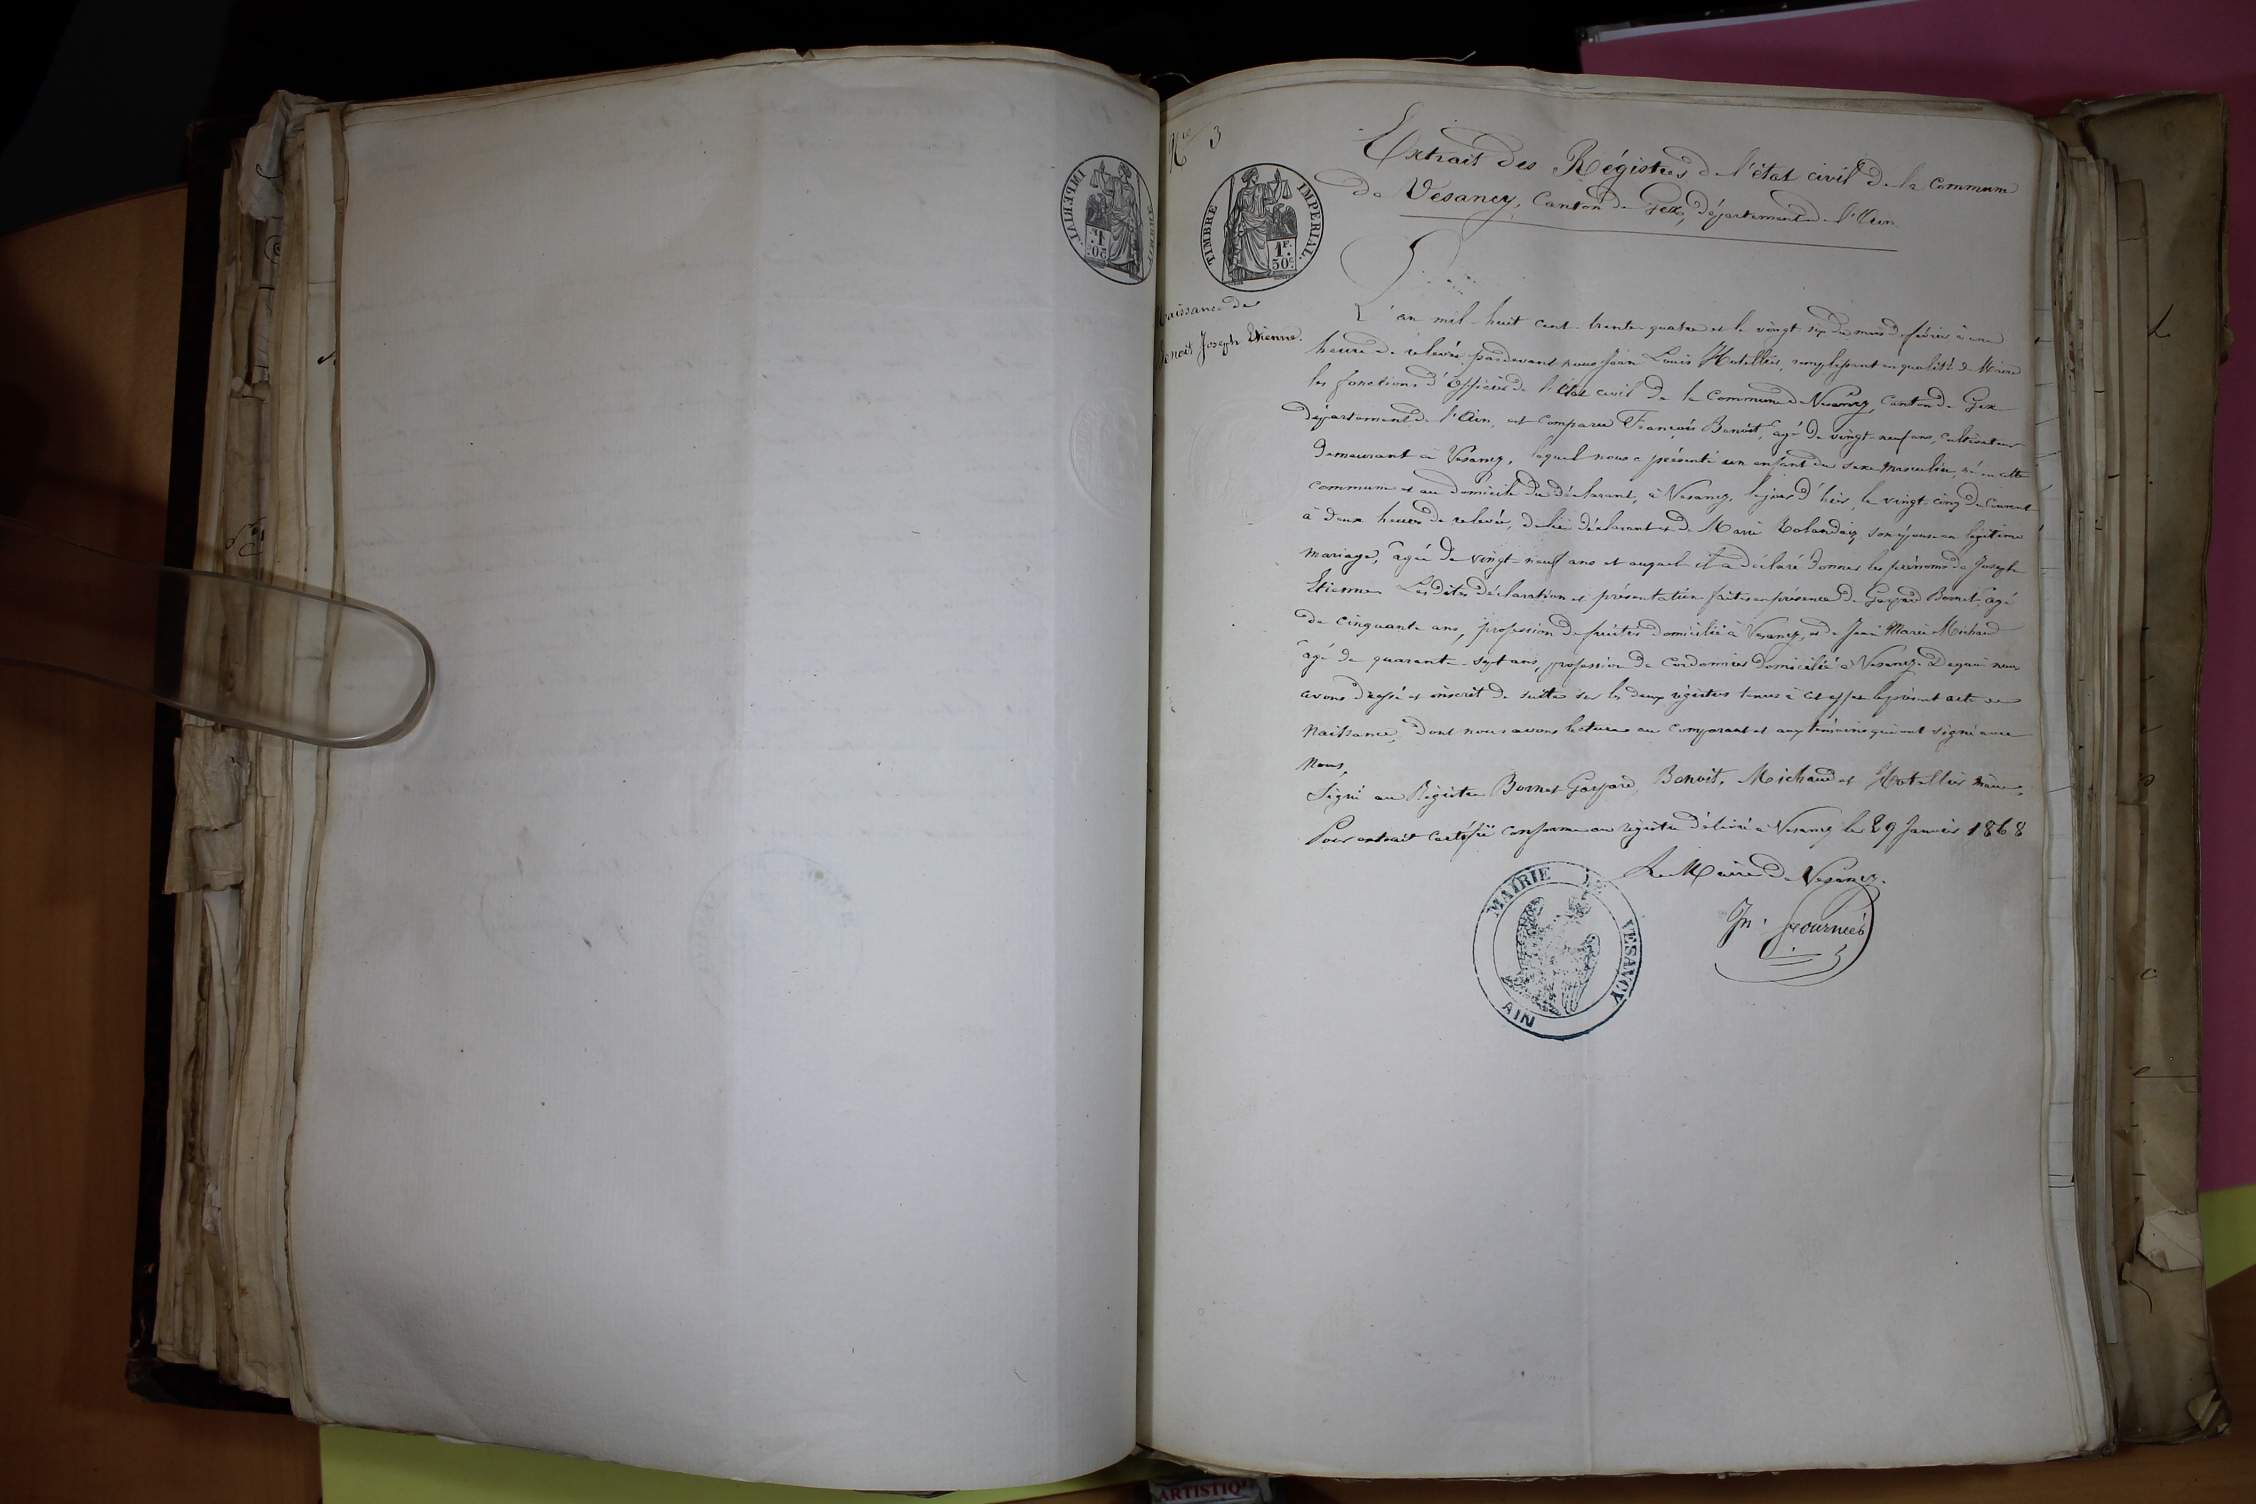 Nº 3
Extrait des Régistres de l'état civil de la Commune
de Vesancy, Canton de Gex, département de l'Ain
TIMBRE IMPERIAL.
1F.
50c
Naissance de
Benoit Joseph Etienne.
L'an mil-huit cent-trente-quatre et le vingt six du mois de février à une
heure de relevée, pardevant nous Jean Louis Hotellier, remplissant en qualité de Maire
les fonctions d'Officier de l'état civil de la Commune de Vesancy, Canton de Gex
département de l'Ain, est comparu François Benoit, agé de vingt-neuf ans, cultivateur
demeurant à Vesancy, lequel nous a présenté un enfant du sexe masculin, né en cette
commune et au domicile du déclarant, à Vesancy, le jour d'hier, le vingt-cinq du courant
à deux heures de relevée, de lui déclarant et de Marie son épouse en légitime
mariage, agée de vingt-neuf ans et auquel il a déclaré donner les prénoms de Joseph
Etienne. Les dites déclaration et présentation faites en présence de Gaspard Bornet, agé
de cinquante ans, profession de domicilié à Vesancy, et de Jean Marie Michaud
agé de quarante-sept ans, profession de Cordonnier domicilié à Vesancy. De quoi nous
avons dressé et inscrit de suite sur les deux régistres tenus à cet effet le présent acte de
Naissance, dont nous avons lecture au comparant et aux témoins qui ont signé avec
Nous,
Signé au Régistre Bornet Gaspard, Benoit, Michaud et Hotellier maire,
Pour extrait certifié conforme au régistre délivré à Vesancy le 29 Janvier 1868
Le Maire de Vesancy.
MAIRIE DE VESANCY
AIN
Jn. Fournier
ARTISTIQ